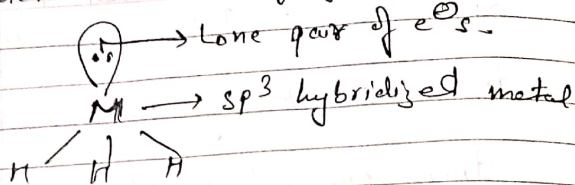 Lone pair of e⊖s.
M → sp³ hybridized metal
H H H